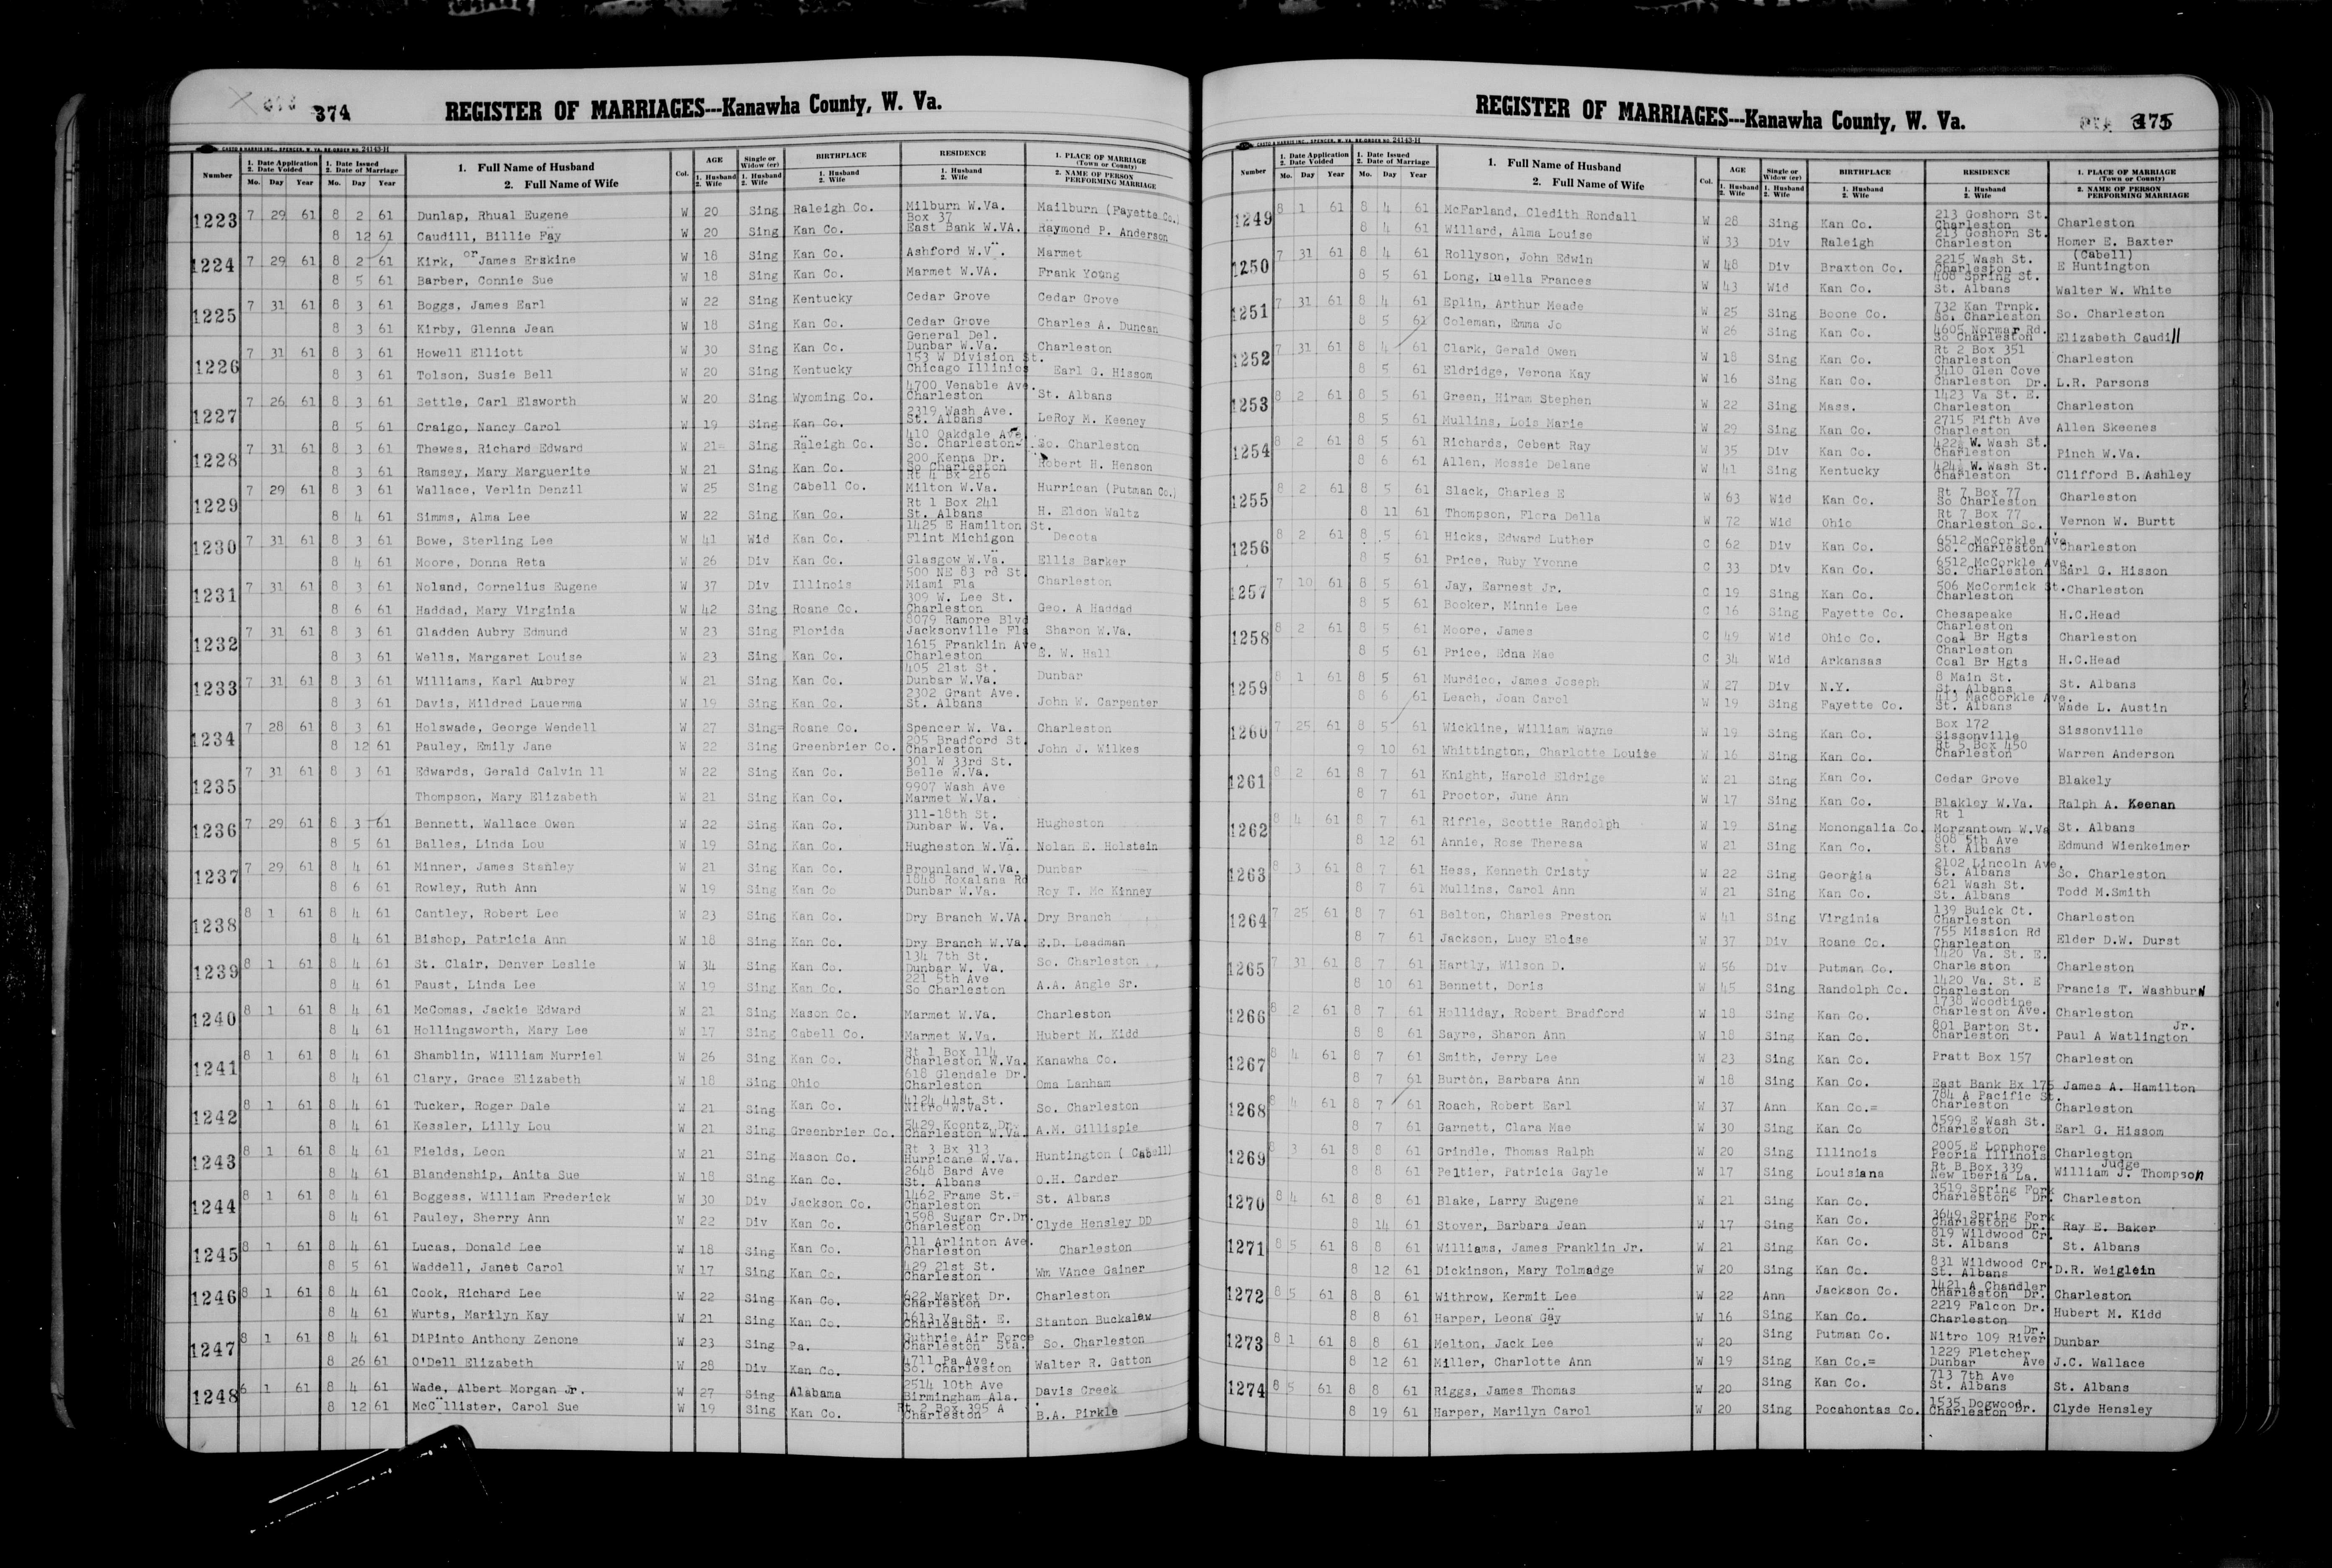 374
REGISTER OF MARRIAGES---Kanawha County, W. Va.
CASTO & HARRIS INC., SPENCER, W. VA. RE-ORDER NO. 24143-H
Number 1. Date Application 2. Date Voided 1. Date Issued 2. Date of Marriage 1. Full Name of Husband 2. Full Name of Wife Col. AGE Single or Widow (er) BIRTHPLACE RESIDENCE 1. PLACE OF MARRIAGE (Town or County) 2. NAME OF PERSON PERFORMING MARRIAGE
Mo. Day Year Mo. Day Year 1. Husband 2. Wife 1. Husband 2. Wife 1. Husband 2. Wife 1. Husband 2. Wife
1223 7 29 61 8 2 61 Dunlap, Rhual Eugene W 20 Sing Raleigh Co. Milburn W.Va. Box 37 Mailburn (Fayette Co.)
8 12 61 Caudill, Billie Fay W 20 Sing Kan Co. East Bank W.VA. Raymond P. Anderson
1224 7 29 61 8 2 61 Kirk, or James Erskine W 18 Sing Kan Co. Ashford W.V. Marmet
8 5 61 Barber, Connie Sue W 18 Sing Kan Co. Marmet W.VA. Frank Young
1225 7 31 61 8 3 61 Boggs, James Earl W 22 Sing Kentucky Cedar Grove Cedar Grove
8 3 61 Kirby, Glenna Jean W 18 Sing Kan Co. Cedar Grove Charles A. Duncan
1226 7 31 61 8 3 61 Howell Elliott W 30 Sing Kan Co. General Del. Dunbar W.Va. Charleston
8 3 61 Tolson, Susie Bell W 20 Sing Kentucky 153 W Division St. Chicago Illinios Earl G. Hissom
1227 7 26 61 8 3 61 Settle, Carl Elsworth W 20 Sing Wyoming Co. 4700 Venable Ave. Charleston St. Albans
8 5 61 Craigo, Nancy Carol W 19 Sing Kan Co. 2319 Wash Ave. St. Albans LeRoy M. Keeney
1228 7 31 61 8 3 61 Thewes, Richard Edward W 21= Sing Raleigh Co. 410 Oakdale Ave. So. Charleston- So. Charleston
8 3 61 Ramsey, Mary Marguerite W 21 Sing Kan Co. 200 Kenna Dr. So Charleston Robert H. Henson
1229 7 29 61 8 3 61 Wallace, Verlin Denzil W 25 Sing Cabell Co. Rt 4 Bx 216 Milton W.Va. Hurrican (Putman Co.)
8 4 61 Simms, Alma Lee W 22 Sing Kan Co. Rt 1 Box 241 St. Albans H. Eldon Waltz
1230 7 31 61 8 3 61 Bowe, Sterling Lee W 41 Wid Kan Co. 1425 E Hamilton St. Flint Michigon Decota
8 4 61 Moore, Donna Reta W 26 Div Kan Co. Glasgow W.Va. Ellis Barker
1231 7 31 61 8 3 61 Noland, Cornelius Eugene W 37 Div Illinois 500 NE 83 rd St Miami Fla Charleston
8 6 61 Haddad, Mary Virginia W 42 Sing Roane Co. 309 W. Lee St. Charleston Geo. A Haddad
1232 7 31 61 8 3 61 Gladden Aubry Edmund W 23 Sing Florida 8079 Ramore Blvd Jacksonville Fla Sharon W.Va.
8 3 61 Wells, Margaret Louise W 23 Sing Kan Co. 1615 Franklin Ave. Charleston E. W. Hall
1233 7 31 61 8 3 61 Williams, Karl Aubrey W 21 Sing Kan Co. 405 21st St. Dunbar W.Va. Dunbar
8 3 61 Davis, Mildred Lauerma W 19 Sing Kan Co. 2302 Grant Ave. St. Albans John W. Carpenter
1234 7 28 61 8 3 61 Holswade, George Wendell W 27 Sing= Roane Co. Spencer W. Va. Charleston
8 12 61 Pauley, Emily Jane W 22 Sing Greenbrier Co. 205 Bradford St. Charleston John J. Wilkes
1235 7 31 61 8 3 61 Edwards, Gerald Calvin 11 W 22 Sing Kan Co. 301 W 33rd St. Belle W.Va.
Thompson, Mary Elizabeth W 21 Sing Kan Co. 9907 Wash Ave Marmet W.Va.
1236 7 29 61 8 3 61 Bennett, Wallace Owen W 22 Sing Kan Co. 311-18th St. Dunbar W. Va. Hugheston
8 5 61 Balles, Linda Lou W 19 Sing Kan Co. Hugheston W.Va. Nolan E. Holstein
1237 7 29 61 8 4 61 Minner, James Stanley W 21 Sing Kan Co. Brounland W.Va. Dunbar
8 6 61 Rowley, Ruth Ann W 19 Sing Kan Co 1848 Roxalana Rd Dunbar W.Va. Roy T. Mc Kinney
1238 8 1 61 8 4 61 Cantley, Robert Lee W 23 Sing Kan Co. Dry Branch W.VA. Dry Branch
8 4 61 Bishop, Patricia Ann W 18 Sing Kan Co. Dry Branch W.Va. E.D. Leadman
1239 8 1 61 8 4 61 St. Clair, Denver Leslie W 34 Sing Kan Co. 134 7th St. Dunbar W. Va. So. Charleston
8 4 61 Faust, Linda Lee W 19 Sing Kan Co. 221 5th Ave So Charleston A.A. Angle Sr.
1240 8 1 61 8 4 61 McComas, Jackie Edward W 21 Sing Mason Co. Marmet W.Va. Charleston
8 4 61 Hollingsworth, Mary Lee W 17 Sing Cabell Co. Marmet W.Va. Hubert M. Kidd
1241 8 1 61 8 4 61 Shamblin, William Murriel W 26 Sing Kan Co. Rt 1 Box 114 Charleston W.Va. Kanawha Co.
8 4 61 Clary, Grace Elizabeth W 18 Sing Ohio 618 Glendale Dr. Charleston Oma Lanham
1242 8 1 61 8 4 61 Tucker, Roger Dale W 21 Sing Kan Co. 4124 41st St. Nitro W.Va. So. Charleston
8 4 61 Kessler, Lilly Lou W 21 Sing Greenbrier Co. 5429 Koontz Dr. Charleston W.Va. A.M. Gillispie
1243 8 1 61 8 4 61 Fields, Leon W 21 Sing Mason Co. Rt 3 Bx 313 Hurricane W.Va. Huntington ( Cabell)
8 4 61 Blandenship, Anita Sue W 18 Sing Kan Co. 2648 Bard Ave St. Albans O.H. Carder
1244 8 1 61 8 4 61 Boggess, William Frederick W 30 Div Jackson Co. 1462 Frame St. Charleston St. Albans
8 4 61 Pauley, Sherry Ann W 22 Div Kan Co. 1598 Sugar Cr.Dr. Charleston Clyde Hensley DD
1245 8 1 61 8 4 61 Lucas, Donald Lee W 18 Sing Kan Co. 111 Arlinton Ave. Charleston Charleston
8 5 61 Waddell, Janet Carol W 17 Sing Kan Co. 429 21st St. Charleston Wm VAnce Gainer
1246 8 1 61 8 4 61 Cook, Richard Lee W 22 Sing Kan Co. 622 Market Dr. Charleston Charleston
8 4 61 Wurts, Marilyn Kay W 21 Sing Kan Co. 1613 Va St. E. Charleston Stanton Buckalew
1247 8 1 61 8 4 61 DiPinto Anthony Zenone W 23 Sing Pa. Guthrie Air Force Charleston Sta. So. Charleston
8 26 61 O'Dell Elizabeth W 28 Div Kan Co. 4711 Pa Ave. So. Charleston Walter R. Gatton
1248 6 1 61 8 4 61 Wade, Albert Morgan Jr. W 27 Sing Alabama 2514 10th Ave Birmingham Ala. Davis Creek
8 12 61 McC llister, Carol Sue W 19 Sing Kan Co. Rt 2 Box 395 A Charleston B.A. Pirkle
REGISTER OF MARRIAGES---Kanawha County, W. Va.
375
CASTO & HARRIS INC., SPENCER, W. VA. RE-ORDER NO. 24143-H
Number 1. Date Application 2. Date Voided 1. Date Issued 2. Date of Marriage 1. Full Name of Husband 2. Full Name of Wife Col. AGE Single or Widow (er) BIRTHPLACE RESIDENCE 1. PLACE OF MARRIAGE (Town or County) 2. NAME OF PERSON PERFORMING MARRIAGE
Mo. Day Year Mo. Day Year 1. Husband 2. Wife 1. Husband 2. Wife 1. Husband 2. Wife 1. Husband 2. Wife
1249 8 1 61 8 4 61 McFarland, Cledith Rondall W 28 Sing Kan Co. 213 Goshorn St. Charleston Charleston
8 4 61 Willard, Alma Louise W 33 Div Raleigh 213 Goshorn St. Charleston Homer E. Baxter
1250 7 31 61 8 4 61 Rollyson, John Edwin W 48 Div Braxton Co. 2215 Wash St. Charleston (Cabell) E Huntington
8 5 61 Long, Luella Frances W 43 Wid Kan Co. 408 Spring St. St. Albans Walter W. White
1251 7 31 61 8 4 61 Eplin, Arthur Meade W 25 Sing Boone Co. 732 Kan Trnpk. So. Charleston So. Charleston
8 5 61 Coleman, Emma Jo W 26 Sing Kan Co. 4605 Normar Rd. So Charleston Elizabeth Caudill
1252 7 31 61 8 4 61 Clark, Gerald Owen W 18 Sing Kan Co. Rt 2 Box 351 Charleston Charleston
8 5 61 Eldridge, Verona Kay W 16 Sing Kan Co. 3410 Glen Cove Charleston Dr. L.R. Parsons
1253 8 2 61 8 5 61 Green, Hiram Stephen W 22 Sing Mass. 1423 Va St. E. Charleston Charleston
8 5 61 Mullins, Lois Marie W 29 Sing Kan Co. 2715 Fifth Ave Charleston Allen Skeenes
1254 8 2 61 8 5 61 Richards, Cebent Ray W 35 Div Kan Co. 422½ W. Wash St. Charleston Pinch W.Va.
8 6 61 Allen, Mossie Delane W 41 Sing Kentucky 424½ W. Wash St. Charleston Clifford B. Ashley
1255 8 2 61 8 5 61 Slack, Charles E W 63 Wid Kan Co. Rt 7 Box 77 So Charleston Charleston
8 11 61 Thompson, Flora Della W 72 Wid Ohio Rt 7 Box 77 Charleston So. Vernon W. Burtt
1256 8 2 61 8 5 61 Hicks, Edward Luther C 62 Div Kan Co. 6512 McCorkle Ave So. Charleston Charleston
8 5 61 Price, Ruby Yvonne C 33 Div Kan Co. 6512 McCorkle Ave. So. Charleston Earl G. Hisson
1257 7 10 61 8 5 61 Jay, Earnest Jr. C 19 Sing Kan Co. 506 McCormick St. Charleston Charleston
8 5 61 Booker, Minnie Lee C 16 Sing Fayette Co. Chesapeake H.C.Head
1258 8 2 61 8 5 61 Moore, James C 49 Wid Ohio Co. Charleston Coal Br Hgts Charleston
8 5 61 Price, Edna Mae C 34 Wid Arkansas Charleston Coal Br Hgts H.C.Head
1259 8 1 61 8 5 61 Murdico, James Joseph W 27 Div N.Y. 8 Main St. St. Albans St. Albans
8 6 61 Leach, Joan Carol W 19 Sing Fayette Co. 413 MacCorkle Ave St. Albans Wade L. Austin
1260 7 25 61 8 5 61 Wickline, William Wayne W 19 Sing Kan Co. Box 172 Sissonville Sissonville
9 10 61 Whittington, Charlotte Louise W 16 Sing Kan Co. Rt 5 Box 450 Charleston Warren Anderson
1261 8 2 61 8 7 61 Knight, Harold Eldrige W 21 Sing Kan Co. Cedar Grove Blakely
8 7 61 Proctor, June Ann W 17 Sing Kan Co. Blakley W.Va. Ralph A. Keenan
1262 8 4 61 8 7 61 Riffle, Scottie Randolph W 19 Sing Monongalia Co. Rt 1 Morgantown W.Va St. Albans
8 12 61 Annie, Rose Theresa W 21 Sing Kan Co. 808 5th Ave St. Albans Edmund Wienkeimer
1263 8 3 61 8 7 61 Hess, Kenneth Cristy W 22 Sing Georgia 2102 Lincoln Ave. St. Albans So. Charleston
8 7 61 Mullins, Carol Ann W 21 Sing Kan Co. 621 Wash St. St. Albans Todd M.Smith
1264 7 25 61 8 7 61 Belton, Charles Preston W 41 Sing Virginia 139 Buick Ct. Charleston Charleston
8 7 61 Jackson, Lucy Eloise W 37 Div Roane Co. 755 Mission Rd Charleston Elder D.W. Durst
1265 7 31 61 8 7 61 Hartly, Wilson D. W 56 Div Putman Co. 1420 Va. St. E. Charleston Charleston
8 10 61 Bennett, Doris W 45 Sing Randolph Co. 1420 Va. St. E Charleston Francis T. Washburn
1266 8 2 61 8 7 61 Halliday, Robert Bradford W 18 Sing Kan Co. 1738 Woodbine Charleston Ave. Charleston
8 8 61 Sayre, Sharon Ann W 18 Sing Kan Co. 801 Barton St. Charleston Paul A Watlington Jr.
1267 8 4 61 8 7 61 Smith, Jerry Lee W 23 Sing Kan Co. Pratt Box 157 Charleston
8 7 61 Burton, Barbara Ann W 18 Sing Kan Co. East Bank Bx 175 James A. Hamilton
1268 8 4 61 8 7 61 Roach, Robert Earl W 37 Ann Kan Co.= 784 A Pacific St. Charleston Charleston
8 7 61 Garnett, Clara Mae W 30 Sing Kan Co 1599 E Wash St. Charleston Earl G. Hissom
1269 8 3 61 8 8 61 Grindle, Thomas Ralph W 20 Sing Illinois 2005 E Lonphore Peoria Illinois Charleston
8 8 61 Peltier, Patricia Gayle W 17 Sing Louisiana Rt B Box 339 New Iberia La. Judge William J. Thompson
1270 8 4 61 8 8 61 Blake, Larry Eugene W 21 Sing Kan Co. 3519 Spring Fork Charleston Dr. Charleston
8 14 61 Stover, Barbara Jean W 17 Sing Kan Co. 3649 Spring Fork Charleston Dr. Ray E. Baker
1271 8 5 61 8 8 61 Williams, James Franklin Jr. W 21 Sing Kan Co. 819 Wildwood Cr. St. Albans St. Albans
8 12 61 Dickinson, Mary Tolmadge W 20 Sing Kan Co. 831 Wildwood Cr St. Albans D.R. Weiglein
1272 8 5 61 8 8 61 Withrow, Kermit Lee W 22 Ann Jackson Co. 1421 A Chandler Charleston Dr. Charleston
8 8 61 Harper, Leona Gay W 16 Sing Kan Co. 2219 Falcon Dr. Charleston Hubert M. Kidd
1273 8 1 61 8 8 61 Melton, Jack Lee W 20 Sing Putman Co. Nitro 109 River Dr. Dunbar
8 12 61 Miller, Charlotte Ann W 19 Sing Kan Co.= 1229 Fletcher Dunbar Ave J.C. Wallace
1274 8 5 61 8 8 61 Riggs, James Thomas W 20 Sing Kan Co. 713 7th Ave St. Albans St. Albans
8 19 61 Harper, Marilyn Carol W 20 Sing Pocahontas Co. 1535 Dogwood Charleston Dr. Clyde Hensley